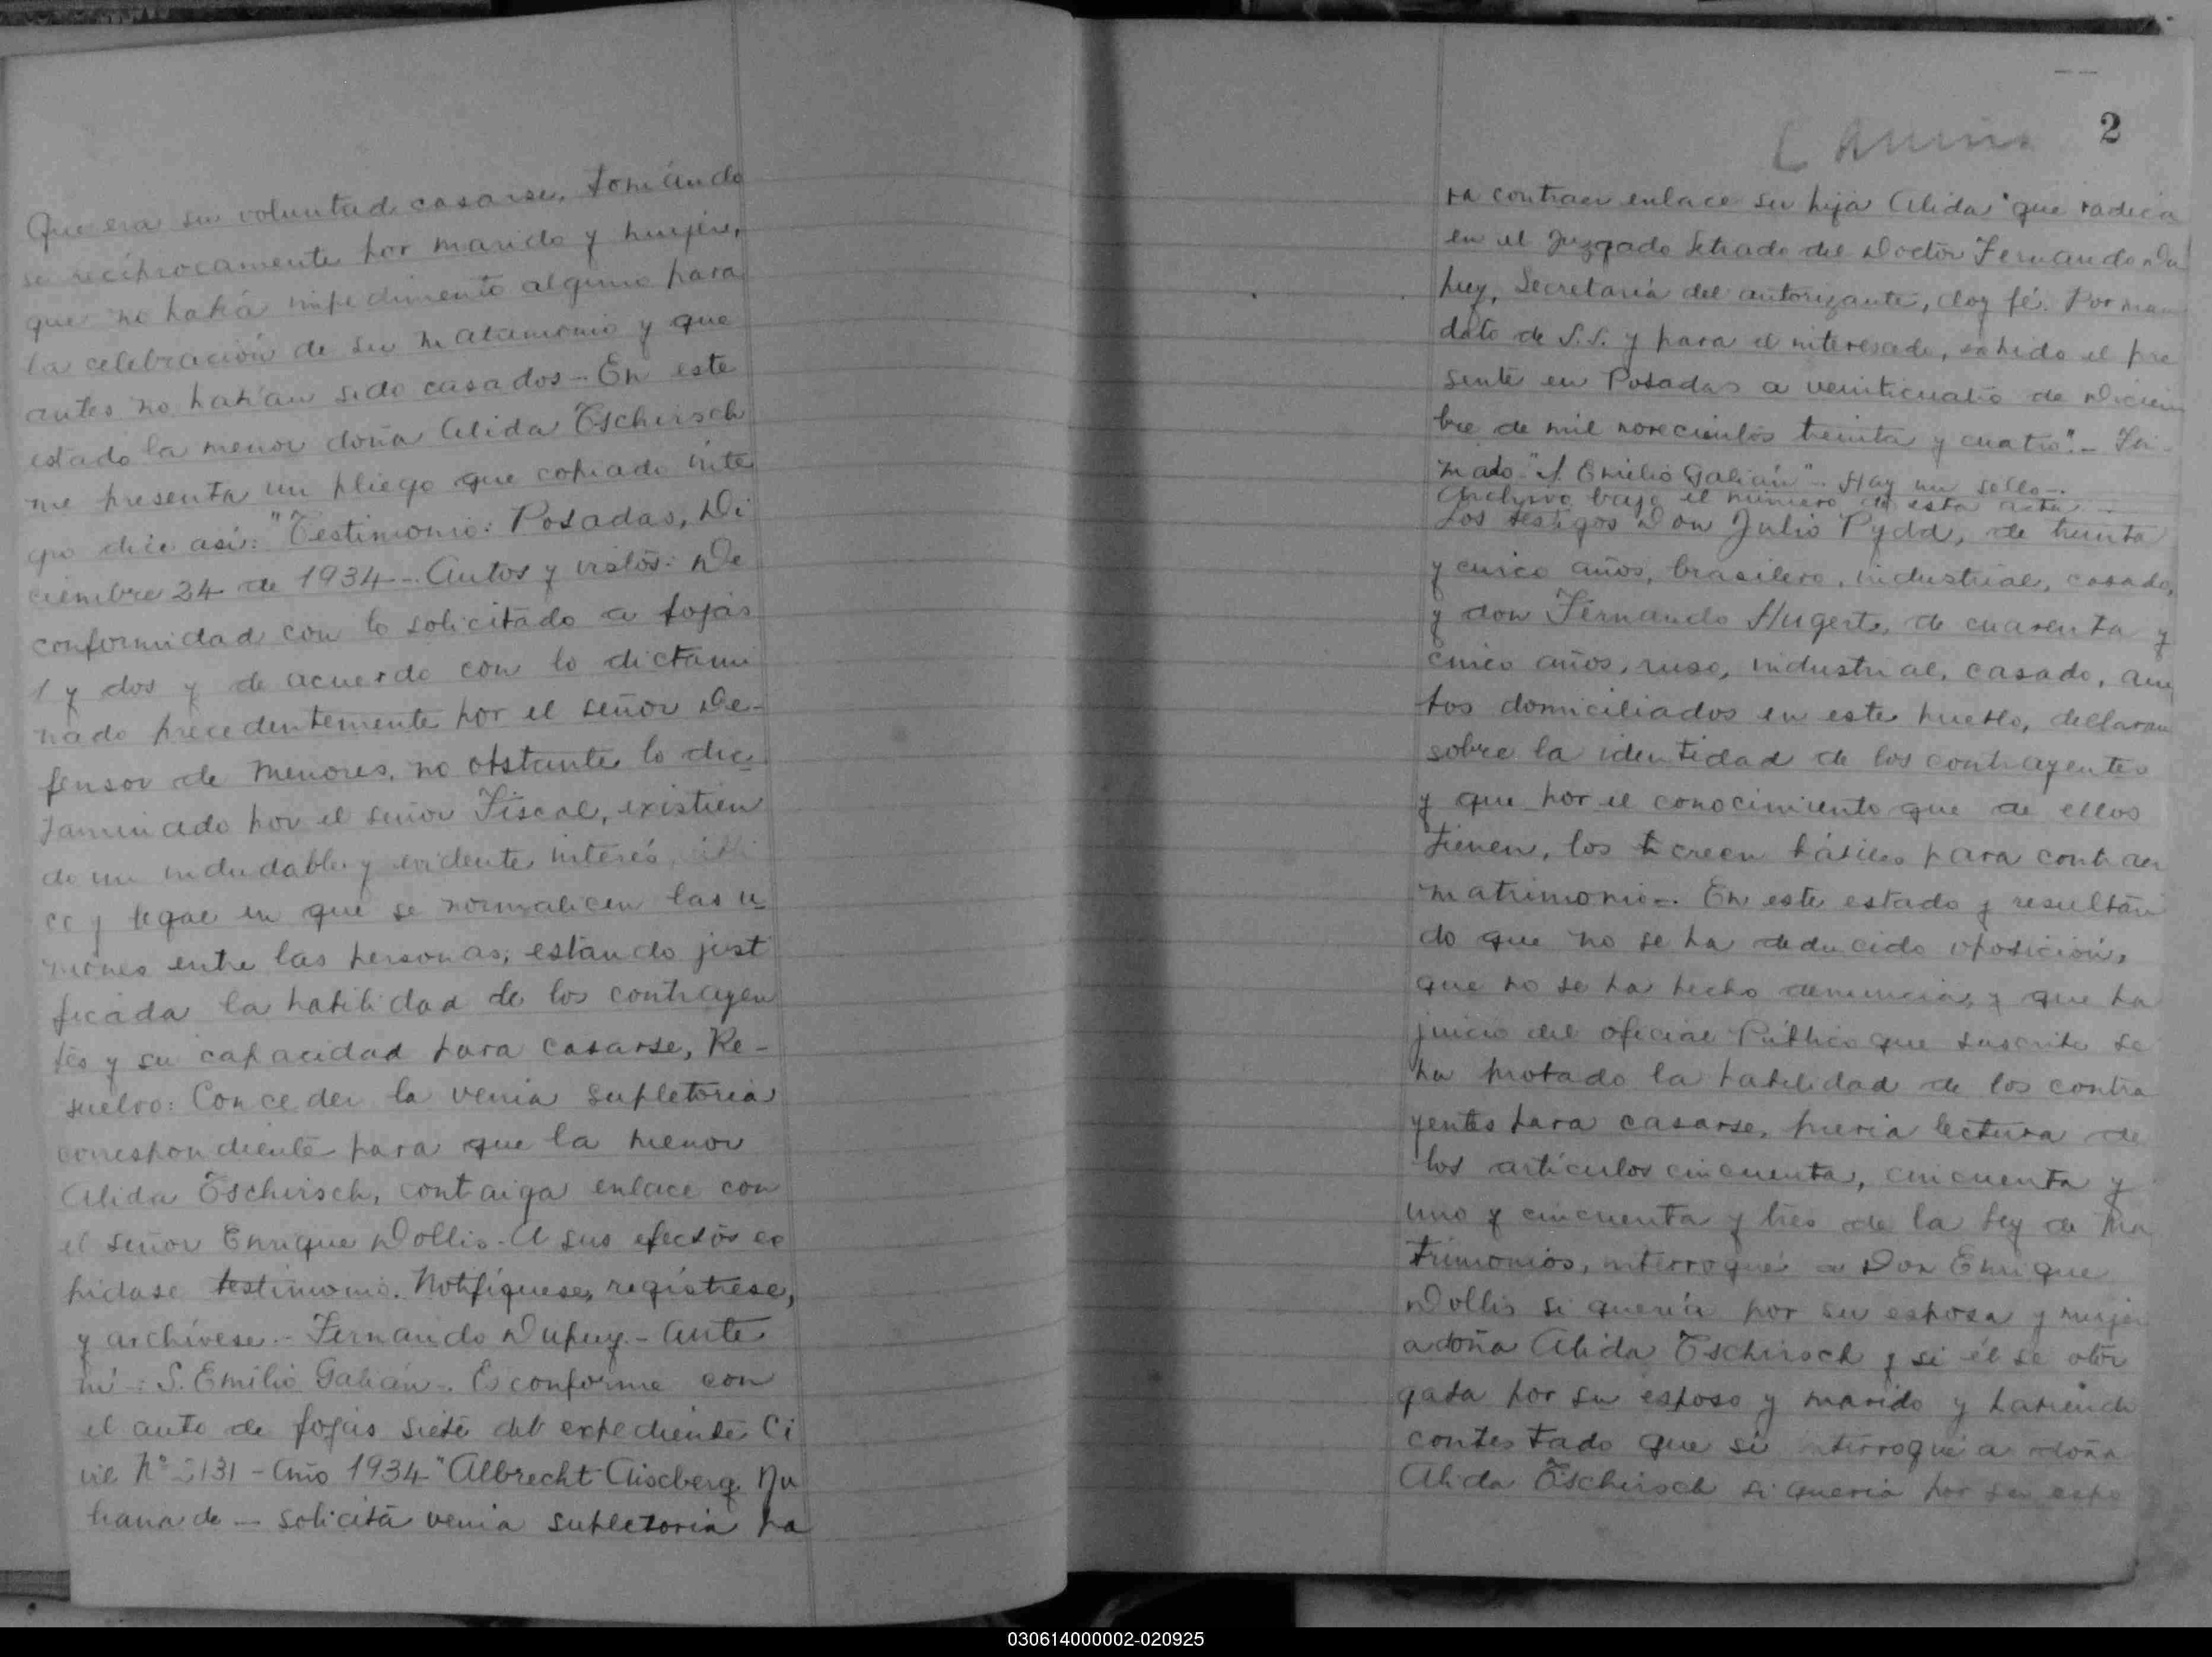 Que era su voluntad casarse, tomándo
se recíprocamente por marido y mujer,
que no había impedimento alguno para
la celebración de su matrimonio y que
antes no habían sido casados.- En este
estado la menor doña Alida Tschirsch
me presenta un pliego que copiado ínte
gro dice así: "Testimonio: Posadas, Di
ciembre 24 de 1934.- Autos y vistos: De
conformidad con lo solicitado a fojas
1 y dos y de acuerdo con lo dictami
nado precedentemente por el señor De-
fensor de Menores, no obstante lo dic
taminado por el señor Fiscal, existien
do un indudable y evidente interés
y legal en que se normalicen las u
niones entre las personas; estando just
ficada la habilidad de los contrayen
tes y su capacidad para casarse, Re-
suelvo: Conceder la venia supletoria
correspondiente para que la menor
Alida Tschirsch, contaiga enlace con
el señor Enrique Dollis.- A sus efectos ex
pídase testimonio. Notifíquese, regístrese,
y archívese.- Fernando Dupuy.- Ante
mí: S. Emilio Galián.- Es conforme con
el auto de fojas siete del expediente Ci
vil Nº 131 - Año 1934 "Albrecht Aiscberg
de - solicita venia supletoria pa
2
ra contraer enlace su hija Alida" que radica
en el Juzgado Letrado del Doctor Fernando Du
puy, Secretaría del autorizante, doy fé. Por man
dato de S.S. y para el interesado, expido el pre
sente en Posadas a veinticuatro de Diciem
bre de mil novecientos treinta y cuatro".- Fir-
mado: "S. Emilio Galián".- Hay un sello.-
Archivo bajo el número de esta acta.-
Los testigos Don Julio Pydd, de treinta
y cinco años, brasilero, industrial, casado,
y don Fernando Hugert, de cuarenta y
cinco años, ruso, industrial, casado, am
bos domiciliados en este pueblo, declaran
sobre la identidad de los contrayentes
y que por el conocimiento que de ellos
tienen, los creen hábiles para contraer
matrimonio.- En este estado y resultan
do que no se ha deducido oposición,
que no se ha hecho denuncia, y que ha
juicio del oficial Público que suscribe se
ha probado la habilidad de los contra
yentes para casarse, previa lectura de
los artículos cincuenta, cincuenta y
uno y cincuenta y tres de la Ley de Ma
trimonios, interroqué a Don Enrique
Dollis si quería por su esposa y mujer
a doña Alida Tschirsch y si él se otor
gaba por su esposo y marido y habiendo
contestado que sí interroqué a doña
Alida Tschirsch si quería por su espo
030614000002-020925